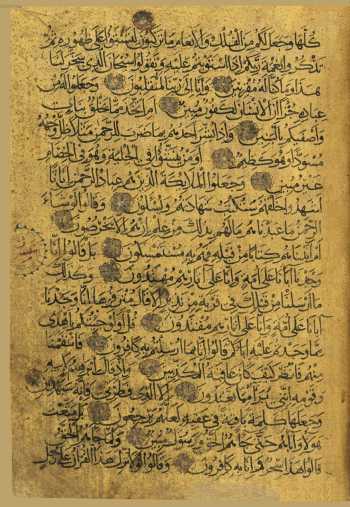 كلها وجعل لكم من الفلك والانعام ما تركبون لتستووا على ظهوره ثم
تذكروا نعمة ربكم اذا استويتم عليه وتقولوا سبحان الذي سخر لنا
هذا وما كنا له مقرنين وانا الى ربنا لمنقلبون وجعلوا له من
عباده جزءا ان الانسان لكفور مبين ام اتخذ مما يخلق بنات
واصفيكم بالبنين واذا بشر احدهم بما ضرب للرحمن مثلا ظل وجهه
مسودا وهو كظيم او من ينشؤا في الحلية وهو في الخصام
غير مبين وجعلوا الملائكة الذين هم عباد الرحمن اناثا
اشهدوا خلقهم ستكتب شهادتهم ويسئلون وقالوا لو شاء
الرحمن ما عبدناهم ما لهم بذلك من علم ان هم الا يخرصون
ام اتيناهم كتابا من قبله فهم به مستمسكون بل قالوا انا
وجدنا اباءنا على امة وانا على اثارهم مهتدون وكذلك
ما ارسلنا من قبلك في قرية من نذير الا قال مترفوها انا وجدنا
اباءنا على امة وانا على اثارهم مقتدون قل اولو جئتكم باهدى
مما وجدتم عليه اباءكم قالوا انا بما ارسلتم به كافرون فانتقمنا
منهم فانظر كيف كان عاقبة المكذبين واذ قال ابرهيم لابيه
وقومه انني براء مما تعبدون الا الذي فطرني فانه سيهدين
وجعلها كلمة باقية في عقبه لعلهم يرجعون بل متعت
هؤلاء واباءهم حتى جاءهم الحق ورسول مبين ولما جاءهم الحق
قالوا هذا سحر وانا به كافرون وقالوا لولا نزل هذا القران على رجل